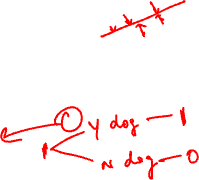 C Y dog — 1
N dog — 0